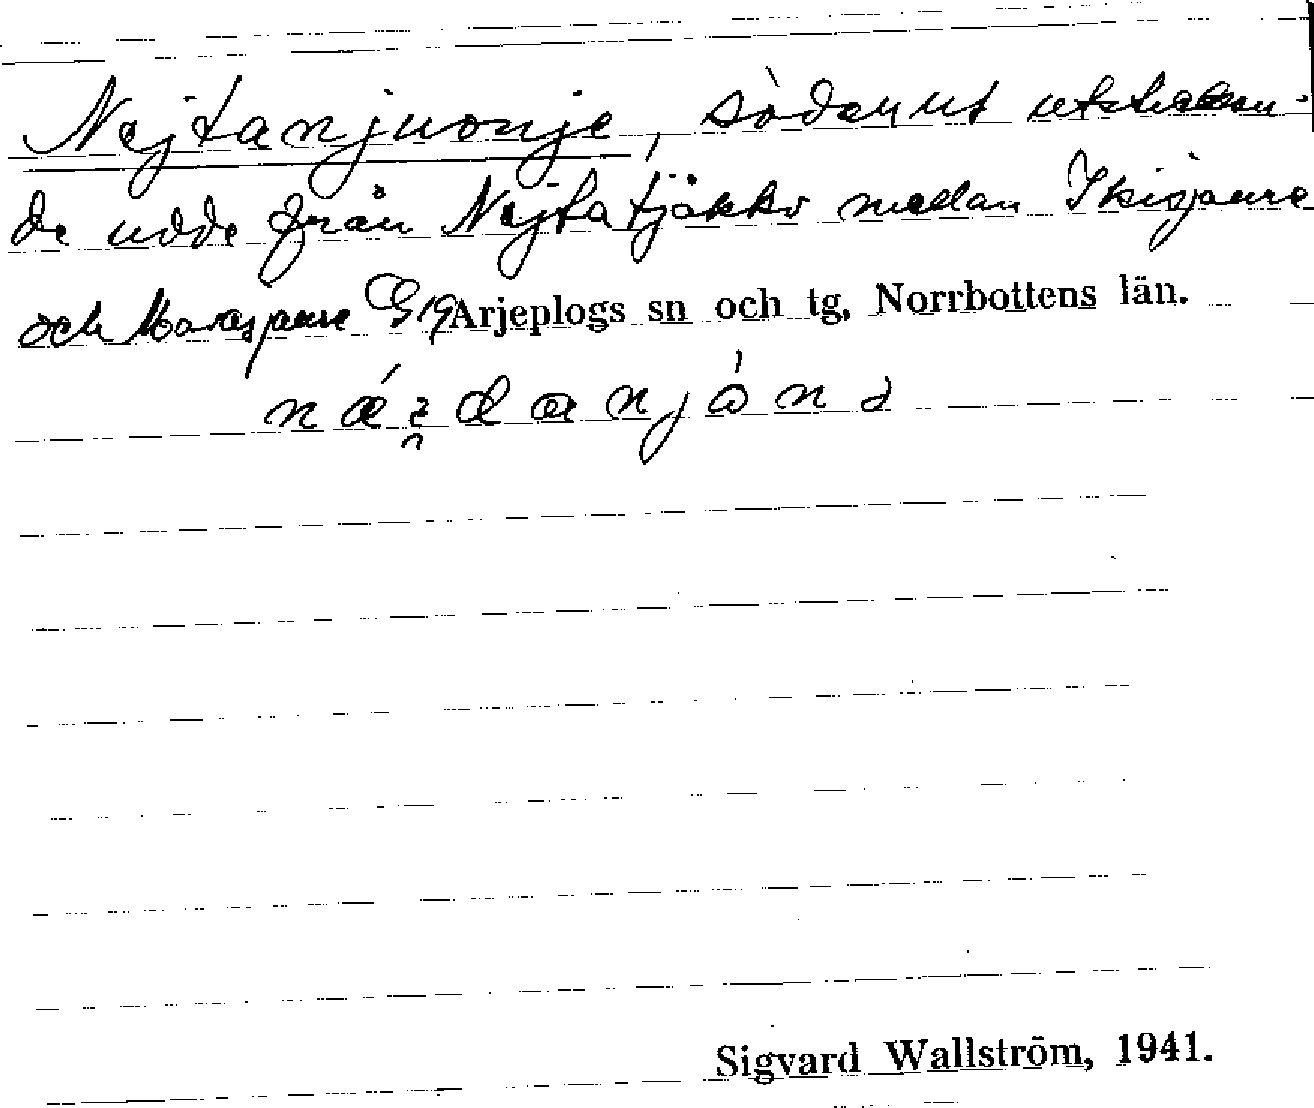 Nejtanjuonje, söderut utskjutan-
de udde från Nejtatjåkko mellan Ikisjaure
och Mavasjaure G 19 Arjeplogs sn och tg, Norrbottens län.
Sigvard Wallström, 1941.